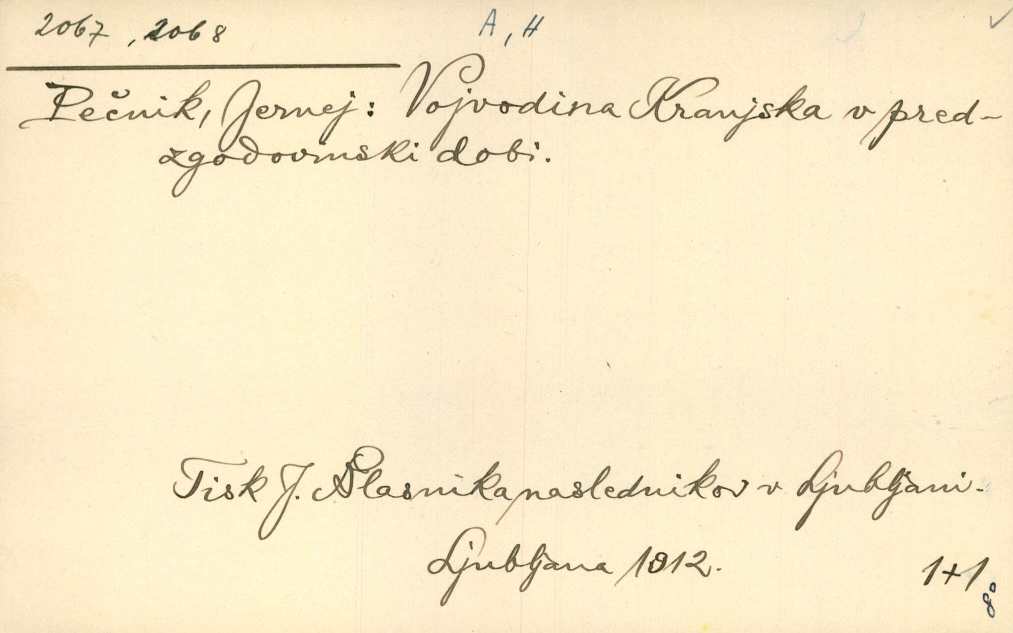 2067, 2068 A, H
Pečnik, Jernej: Vojvodina Kranjska v pred-
zgodovinski dobi.
Tisk J. Blasnika naslednikov v Ljubljani.
Ljubljana 1912.
1+1
8°